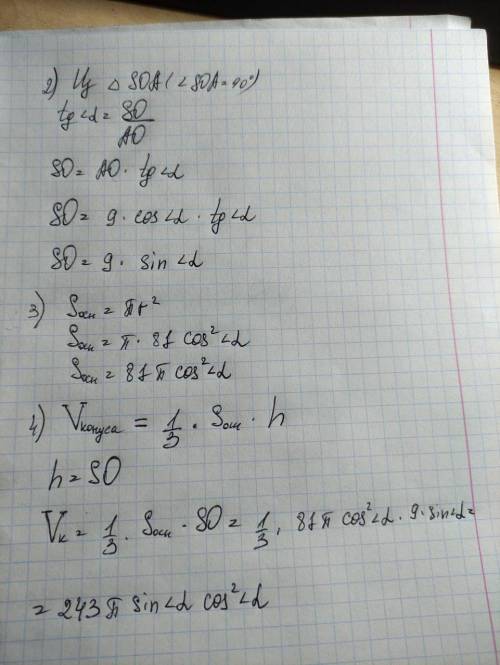 2) Из △ SOA (∠SOA = 90°)
tg∠α = SO/AO
SO = AO · tg∠α
SO = 9 · cos∠α · tg∠α
SO = 9 · sin∠α
3) Sосн = πr²
Sосн = π · 81 cos²∠α
Sосн = 81π cos²∠α
4) Vконуса = 1/3 · Sосн · h
h = SO
Vк = 1/3 · Sосн · SO = 1/3 · 81π cos²∠α · 9 · sin∠α =
= 243π sin∠α cos²∠α